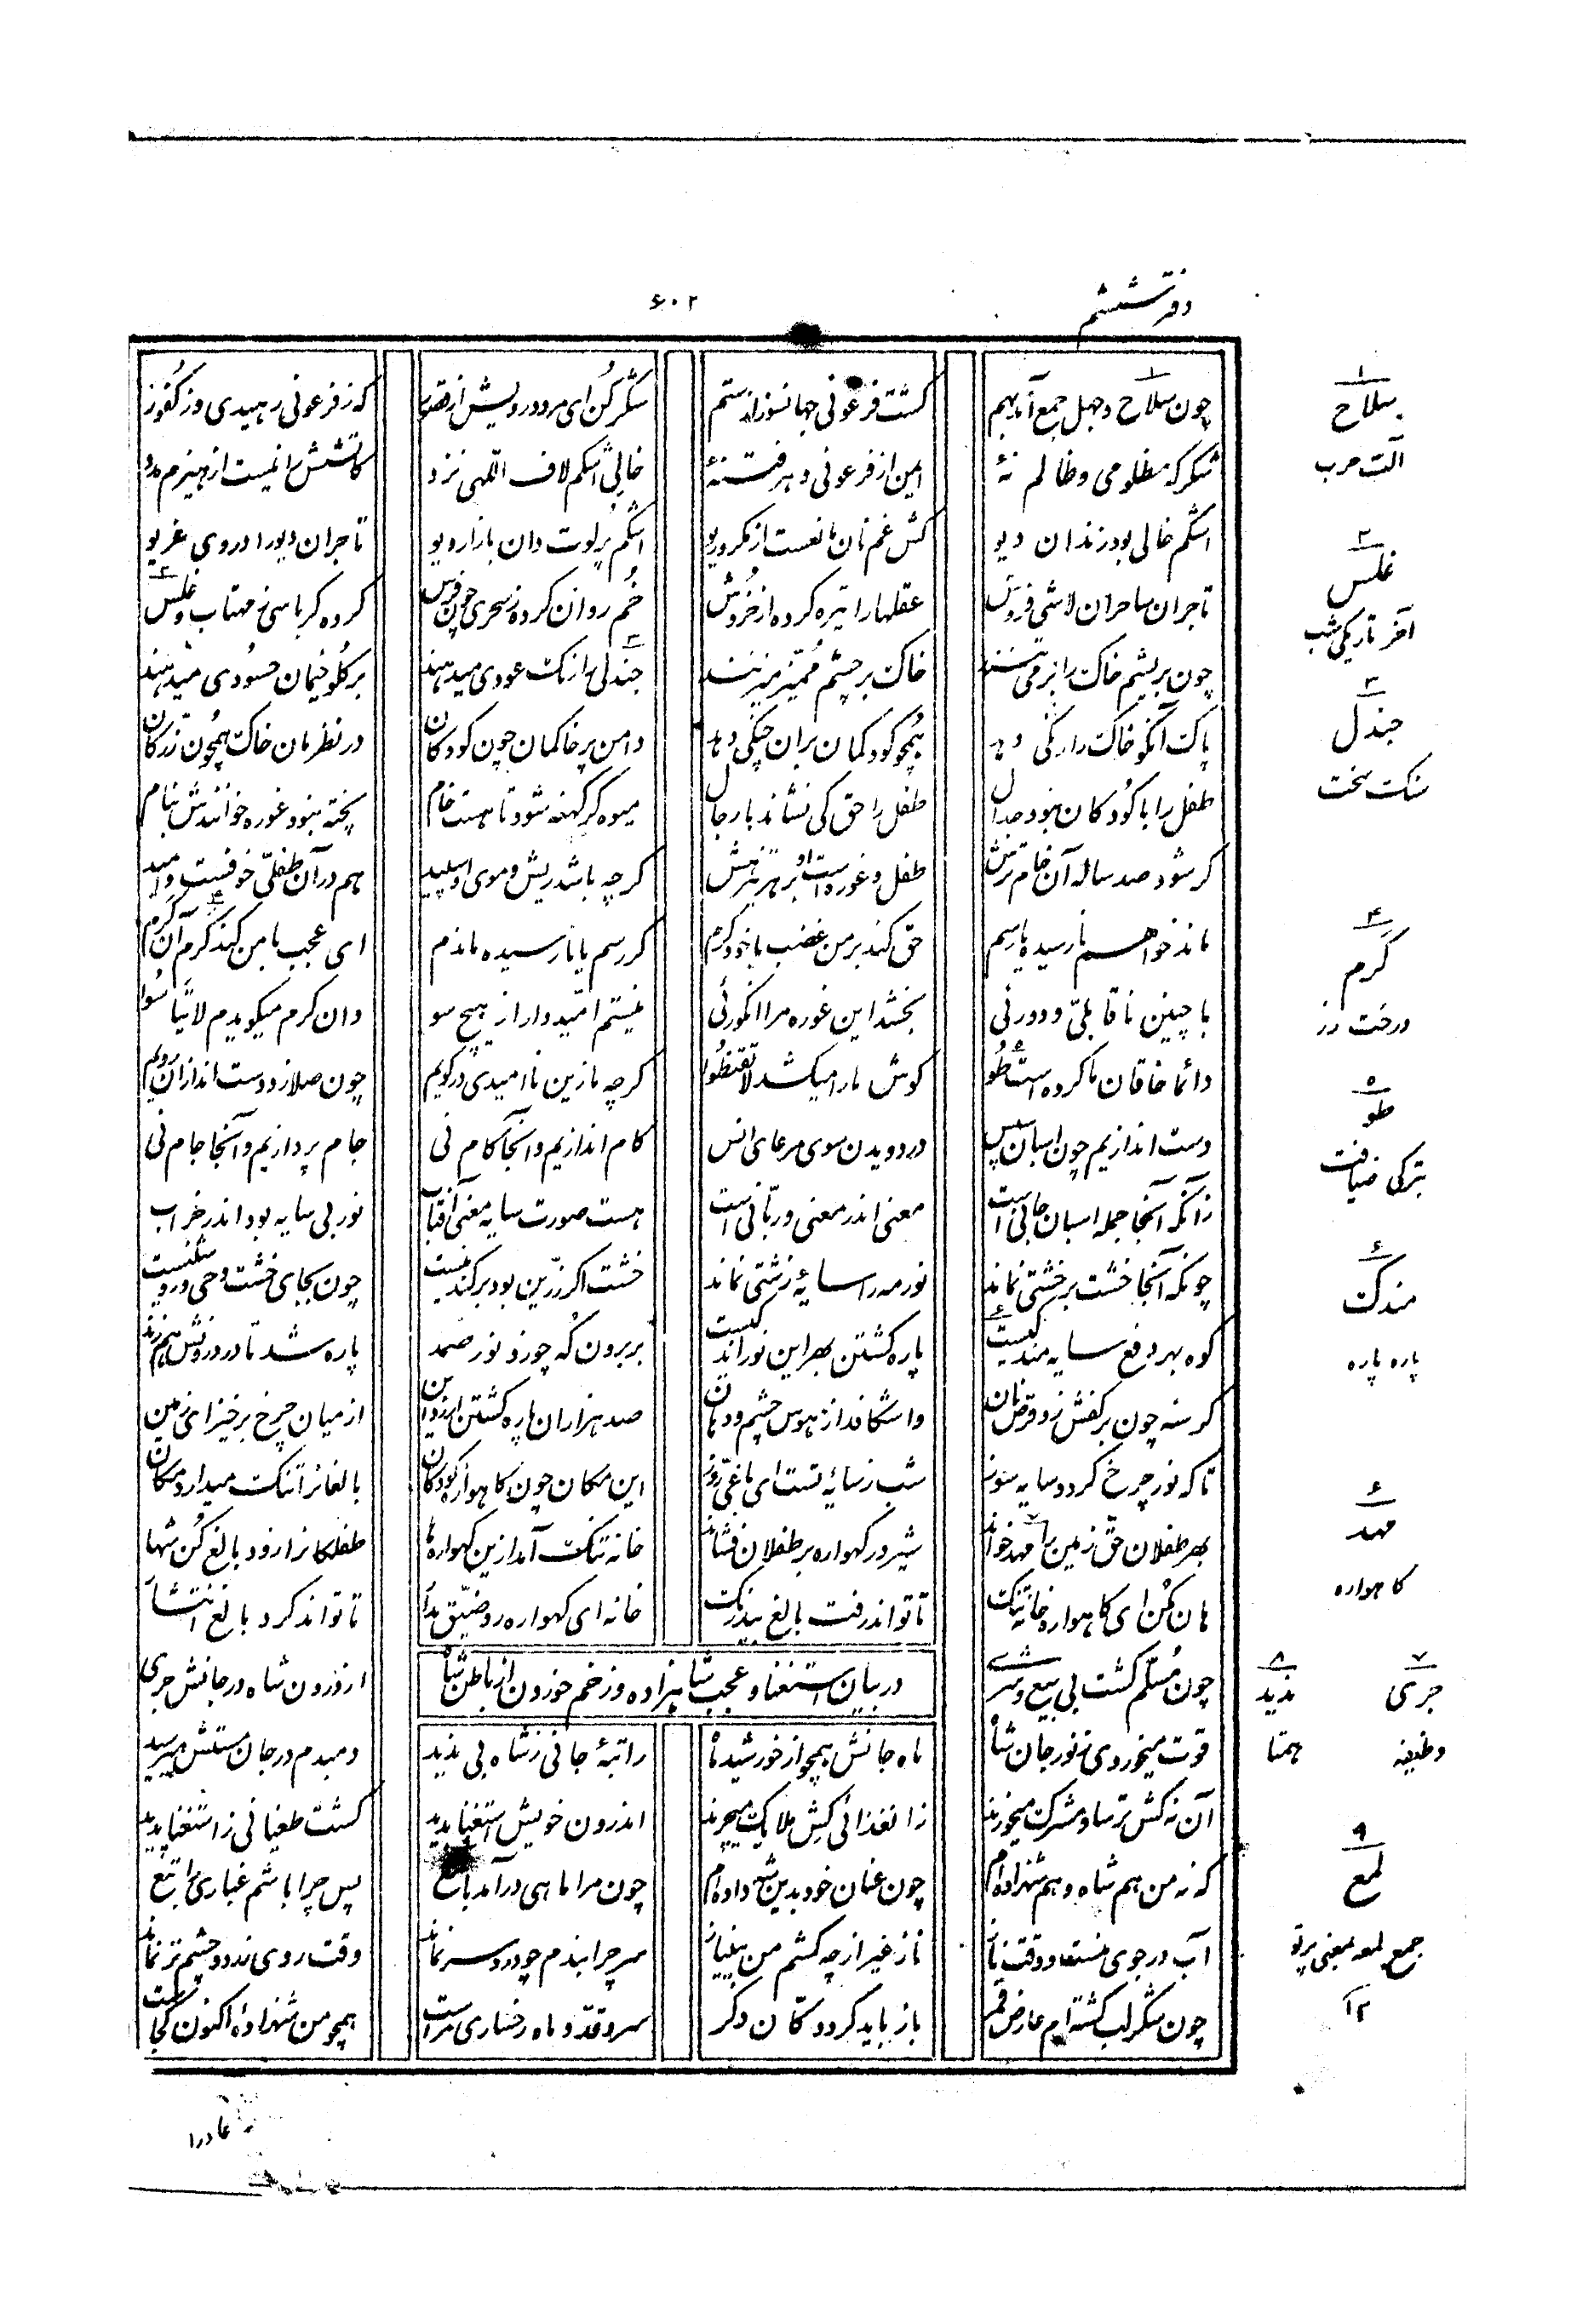 دفتر ششم
۶۰۲
چون سلاح و جهل جمع آید بهم کشت فرعونی جهانسوز از ستم شکر کن ای مرد درویش از قصور که ز فرعونی رهیدی وز کفور
شکر که مظلومی و ظالم نهٔ ایمن از فرعونی و هر فتنهٔ خالی اشکم لاف اللهی نزد کاتشش را نیست از هیزم مدد
اشکم خالی بود زندان دیو کش غم نان مانعست از مکر و ریو اشکم پر لوت دان بازار دیو تاجران دیو را در وی غریو
تاجران ساحران لاشی فروش عقلها را تیره کرده از خروش خم روان کرده ز سحری چون فرس کرده کرباسی ز مهتاب و غلس
چون بریشم خاک را بر می‌تنند خاک بر چشم ممیز میزنند جندلی را رنک عودی میدهند بر کلوخیمان حسودی میدهند
پاک آنکو خاک را رنکی دهد همچو کودکمان بران جنکی دهد دامن پر خاکمان چون کودکان در نظرمان خاک همچون زر کان
طفل را با کودکان نبود جدال طفل را حق کی نشاند با رجال میوه کر کهنه شود تا هست خام پخته نبود غوره خوانندش بنام
کر شود صد ساله آن خام ترش طفل و غوره است او بر هر تیزهش کرچه باشد ریش و موی او سپید هم در آن طفلی خوفست و امید
ماند خواهم نارسیده یا رسم حق کند بر من غضب یا خود کرم کر رسم یا نارسیده ماندم ای عجب با من کند کرم آن کرم
با چنین ناقابلی و دورئی بخشد این غوره مرا انکورئی نیستم امیدوار از هیچ سو وان کرم میکویدم لا تیأسوا
دائما خاقان ما کرده است طو کوش ما را میکشد لا تقنطوا کرچه ما زین ناامیدی در کویم چون صلا زد دست اندازان رویم
دست اندازیم چون اسبان سیس در دویدن سوی مرعای انس کام اندازیم و آنجا کام نی جام پردازیم و آنجا جام نی
زآنکه آنجا جمله اسبان جانی است معنی اندر معنی و ربانی است هست صورت سایه معنی آفتاب نور بی سایه بود اندر خراب
چونکه آنجا خشت بر خشتی نماند نور مه را سایهٔ زشتی نماند خشت اکر زرین بود بر کندنیست چون بجای خشت وحی و روشنیست
کوه بهر دفع سایه مندکیست پاره کشتن بهر این نور اندکیست بر برون که چو زد نور صمد پاره شد تا در درونش هم زند
کرسنه چون بر کفش زد قرص نان واشکافد از هوس چشم و دهان صد هزاران پاره کشتن ارزد این از میان چرخ برخیز ای زمین
تا که نور چرخ کردد سایه سوز شب ز سایهٔ تست ای یاغی روز این مکان چون کاهوارهٔ کودکان بالغانرا تنک میدارد مکان
بهر طفلان حق زمین را مهد خواند شیر در کهواره بر طفلان فشاند خانه تنک آمد ازین کهواره‌ها طفلکانرا زود بالغ کن شها
هان مکن ای کاهواره خانه تنک تا تواند رفت بالغ بیدرنک خانه ای کهواره رو ضیق مدار تا تواند کرد بالغ انتشار
در بیان استغنا و عجب شاهزاده و زخم خوردن از باطن شاه
چون مسلم کشت بی بیع و شری از درون شاه در جانش جری
قوت میخوردی ز نور جان شاه ماه جانش همچو از خورشید ماه راتبهٔ جانی ز شاه بی ندید دمبدم در جان مستش میرسید
آن نه کش ترسا و مشرک میخورند زان غذائی کش ملایک میچرند اندرون خویش استغنا بدید کشت طغیانی ز استغنا پدید
که نه من هم شاه و هم شهزاده‌ام چون عنان خود بدین شه داده‌ام چون مرا ماهی در آمد با لمع پس چرا باشم غباری را تبع
آب در جوی منست و وقت ناز ناز غیر از چه کشم من بی نیاز سر چرا بندم چو درد سر نماند وقت روی زرد و چشم تر نماند
چون شکر لب کشته‌ام عارض قمر باز باید کرد دکان دکر سرو قد و ماه رخساری مراست همچو من شهزاده اکنون کجاست
۱
سلاح
آلت حرب
۲
غلس
آخر تاریکی شب
۳
جندل
سنک سخت
۴
کرم
درخت رز
۵
طو
بترکی ضیافت
۶
مندک
پاره پاره
۶
مهد
کاهواره
۷
جری
وظیفه
۸
ندید
همتا
۹
لمع
جمع لمعه بمعنی پرتو
۱۲